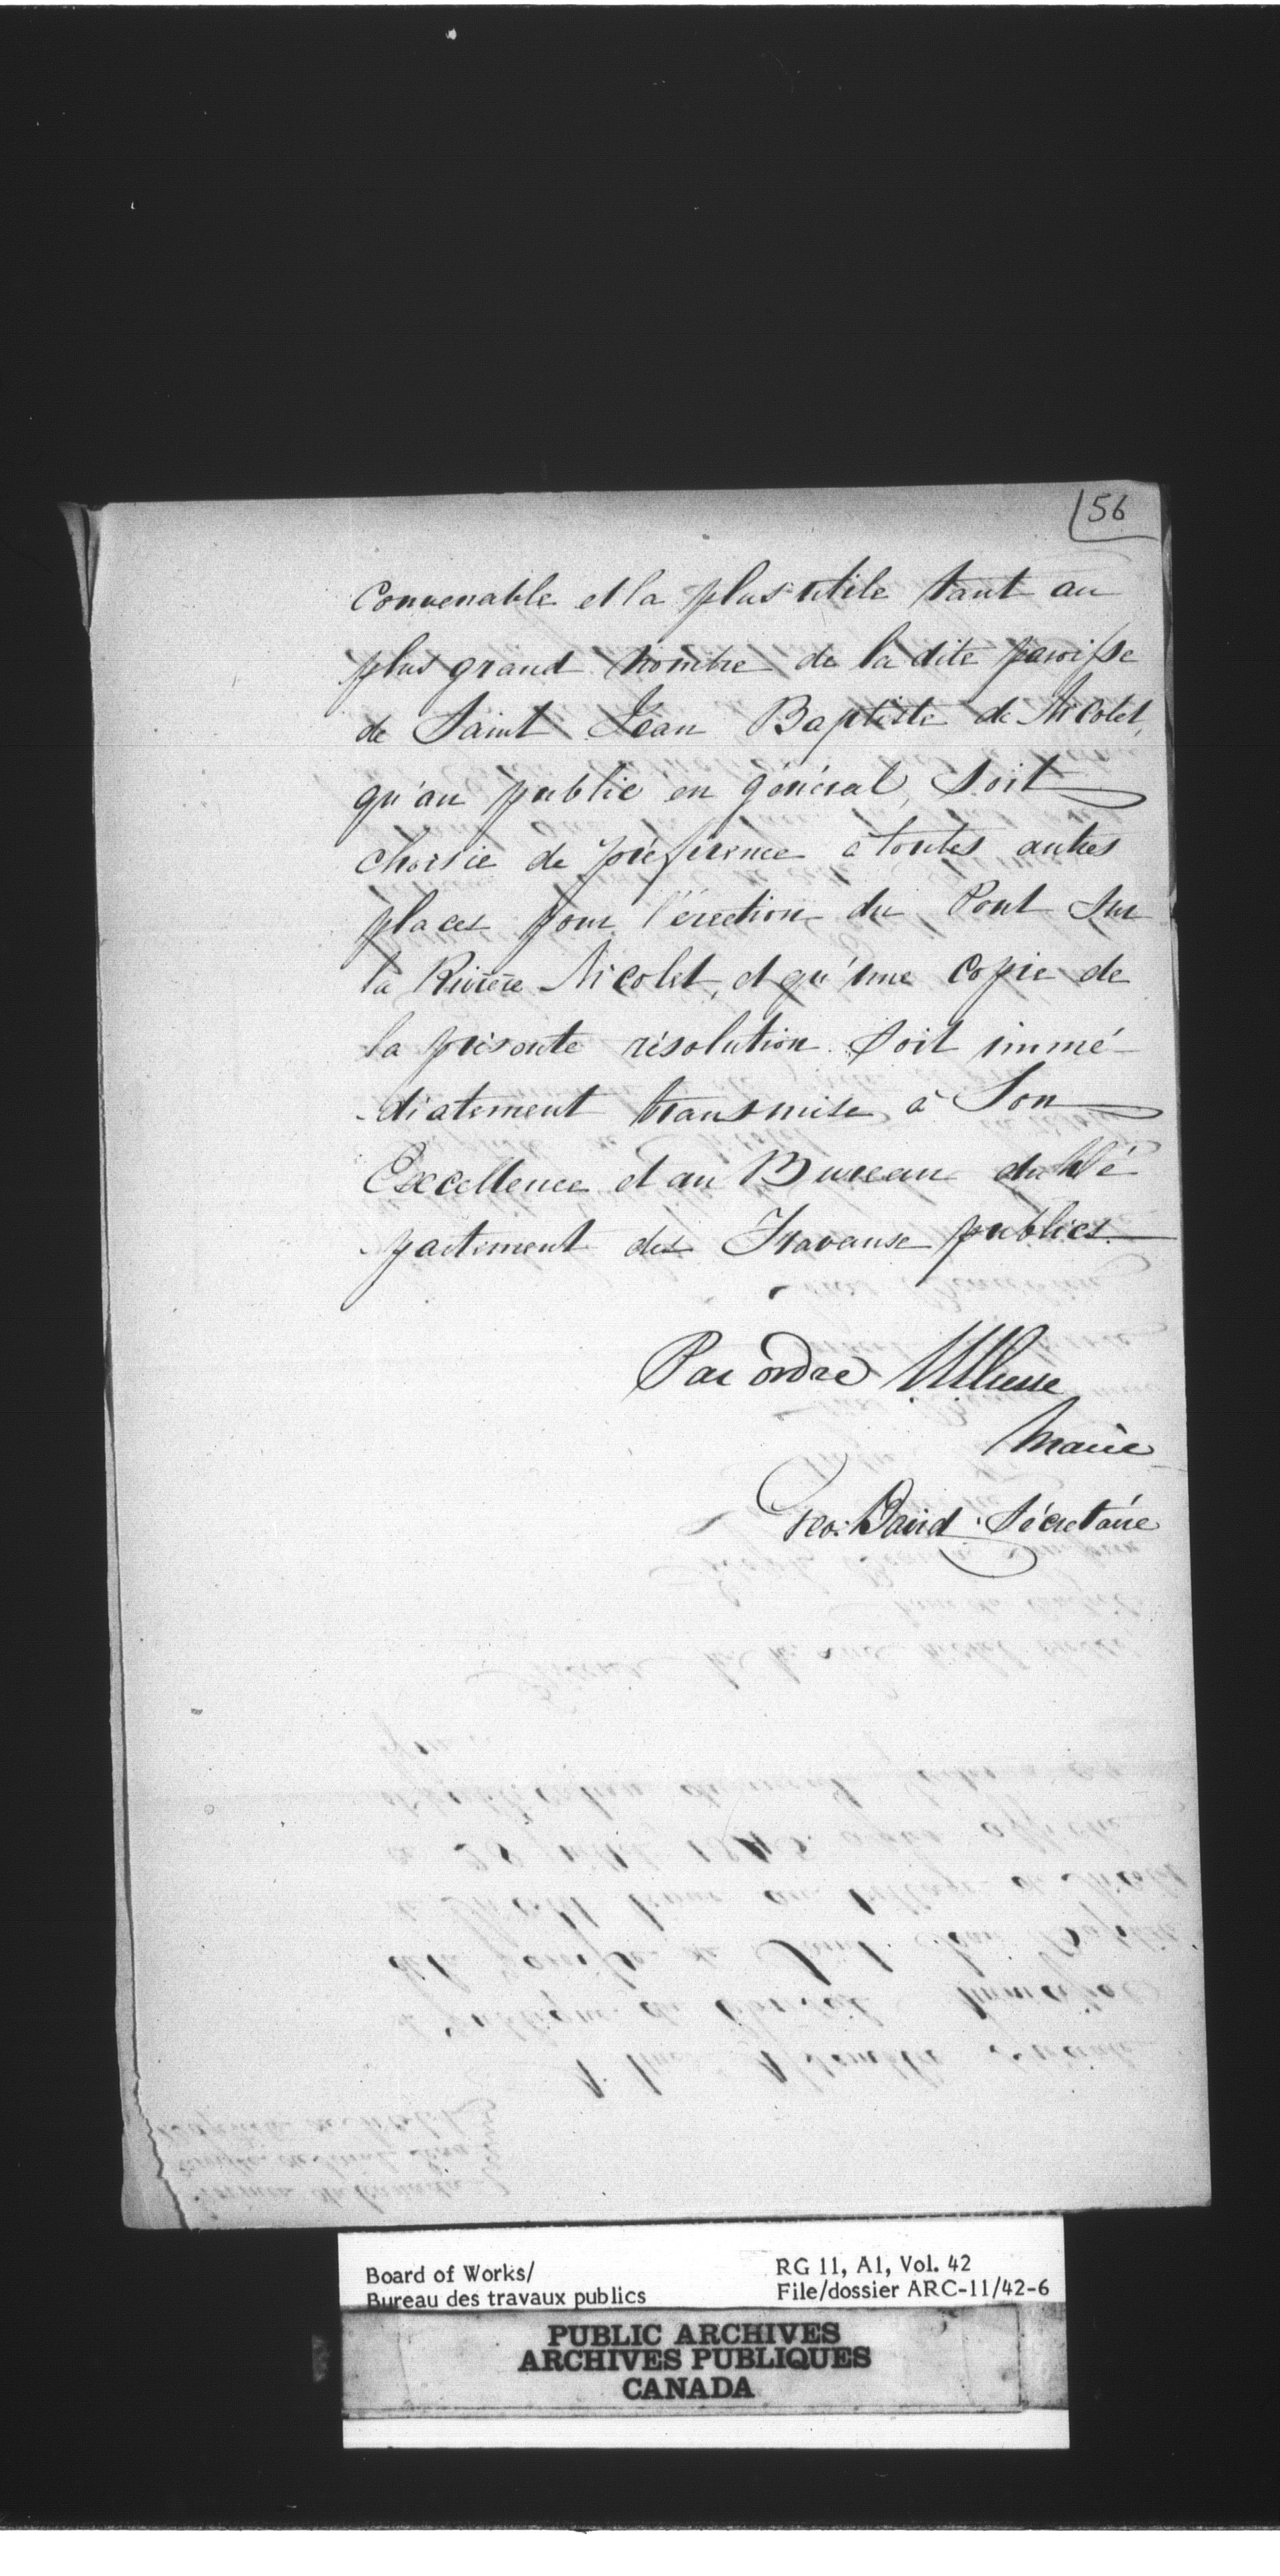 56
convenable et la plus utile tant au
plus grand nombre de la dite paroisse
de Saint Jean Baptiste de Nicolet,
qu'au public en général, soit
choisie de préférence à toutes autres
places pour l'érection du Pont sur
la Rivière Nicolet, et qu'une copie de
la présente résolution soit immé-
-diatement transmise à Son
Excellence et au Bureau du Dé
-partement des Travaux publics.
Par ordre
Maire
Geo: David Sécretaire
Board of Works/
Bureau des travaux publics
RG 11, A1, Vol. 42
File/dossier ARC-11/42-6
PUBLIC ARCHIVES
ARCHIVES PUBLIQUES
CANADA